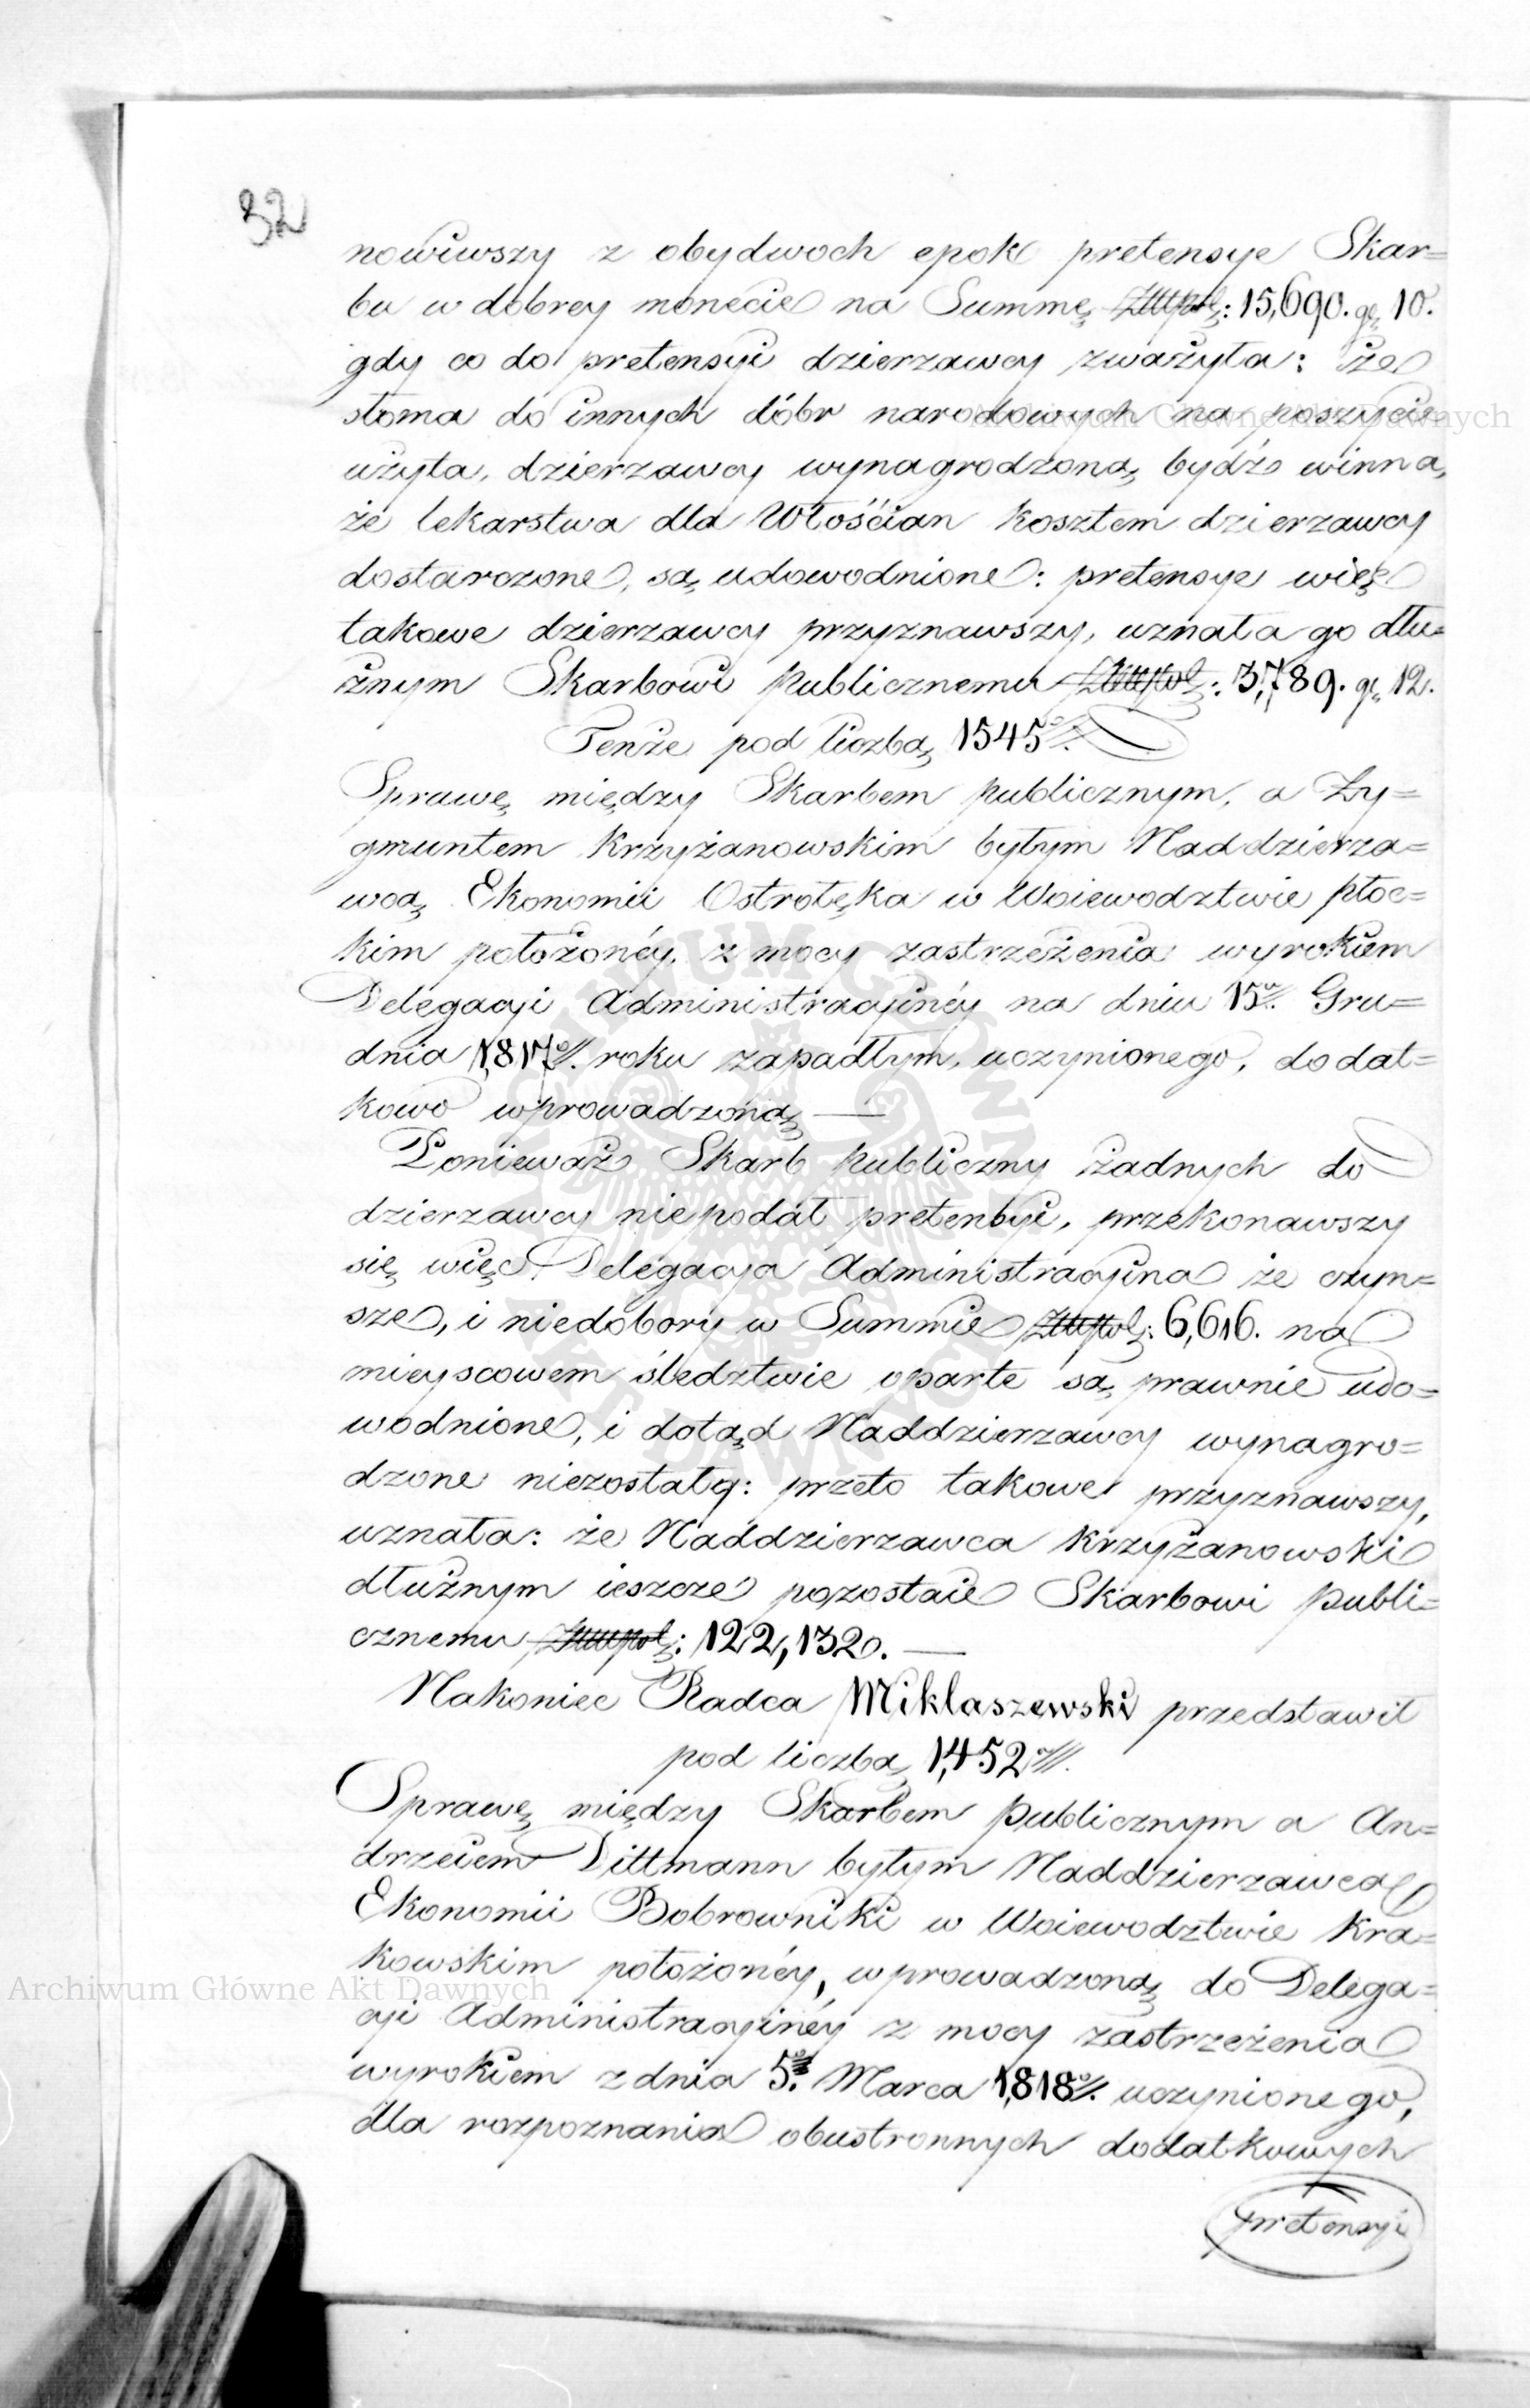 32
nowiwszy z obydwoch epok pretensye Skar=
bu w dobrey monecie na Summę Złłpol: 15,690. gr, 10.
gdy co do pretensyi dzierzawcy zważyła: że
słoma do innych dóbr narodowych na poszycie
użyta, dzierzawcy wynagrodzoną bydź winna,
że lekarstwa dla Włościan kosztem dzierzawcy
dostarczone, są udowodnione: pretensye więc
takowe dzierzawcy przyznawszy, uznała go dłu=
żnym Skarbowi Publicznemu Złłpol: 3,789. gr, 12.
Tenże pod liczbą 1545.
Sprawę między Skarbem publicznym, a Zy=
gmuntem Krzyżanowskim byłym Naddzierza=
wcą Ekonomii Ostrołęka w Woiewodztwie płoc=
kim położonéy, z mocy zastrzeżenia wyrokiem
Delegacyi Administracyinéy na dniu 15. Gru=
dnia 1,817. roku zapadłym, uczynionego, dodat=
kowo wprowadzoną —
Ponieważ Skarb Publiczny żadnych do
dzierzawcy niepodał pretensyi, przekonawszy
się więc Delegacya Administracyina że czyn=
sze, i niedobory w Summie Złłpol: 6,616. na
mieyscowem śledztwie oparte są prawnie udo=
wodnione, i dotąd Naddzierzawcy wynagro=
dzone niezostały: przeto takowe przyznawszy,
uznała: że Naddzierzawca Krzyżanowski
dłużnym ieszcze pozostaie Skarbowi Publi=
cznemu Złłpol: 122,132. —
Nakoniec Radca Miklaszewski przedstawił
pod liczbą 1,452.
Sprawę między Skarbem Publicznym a An=
drzeiem Dittmann byłym Naddzierzawcą
Ekonomii Bobrowniki w Woiewodztwie Kra=
kowskim położonéy, wprowadzoną do Delega=
cyi Administracyinéy z mocy zastrzeżenia
wyrokiem z dnia 5. Marca 1,818. uczynionego,
dla rozpoznania obustronnych dodatkowych
pretensyi
Archiwum Główne Akt Dawnych
Archiwum Główne Akt Dawnych
ARCHIWUM GŁÓWNE AKT DAWNYCH